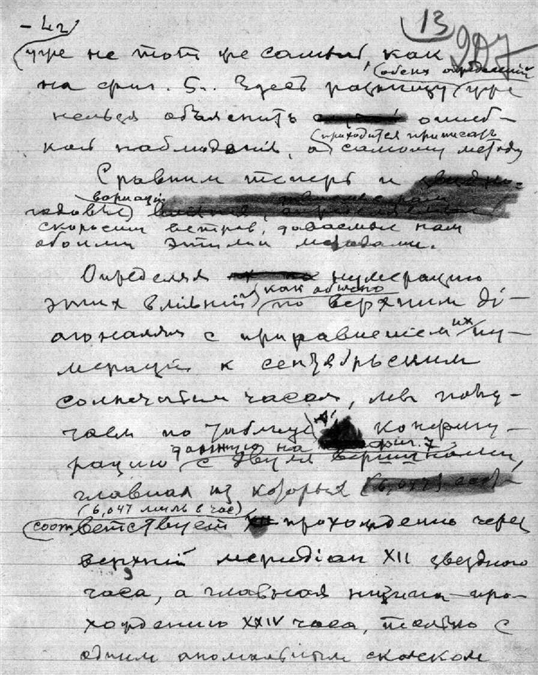 - 42
13
907
уже не тот же самый, как
на фиг. 5. Здесь разницу (обеих определений) уже
нельзя объяснить ошиб-
кой наблюдения, а (приходится приписать) самому методу
Сравним теперь и
годовые вариации
скоростей ветров, даваемые нам
обоими этими методами.
Определяя нумерацию
этих влияний (как обычно) по верхним ди-
агоналям с приравнением их ну-
мерации к сентябрьским
солнечным часам, мы полу-
чаем по таблице конфигу-
рацию данную на фиг. 7 с двумя вершинами,
главная из которых
(6,047 миль в час)
соответствует прохождению через
верхний меридиан XII звездного
часа, а главная низина про-
хождению XXIV часа, только с
одним аномальным скачком